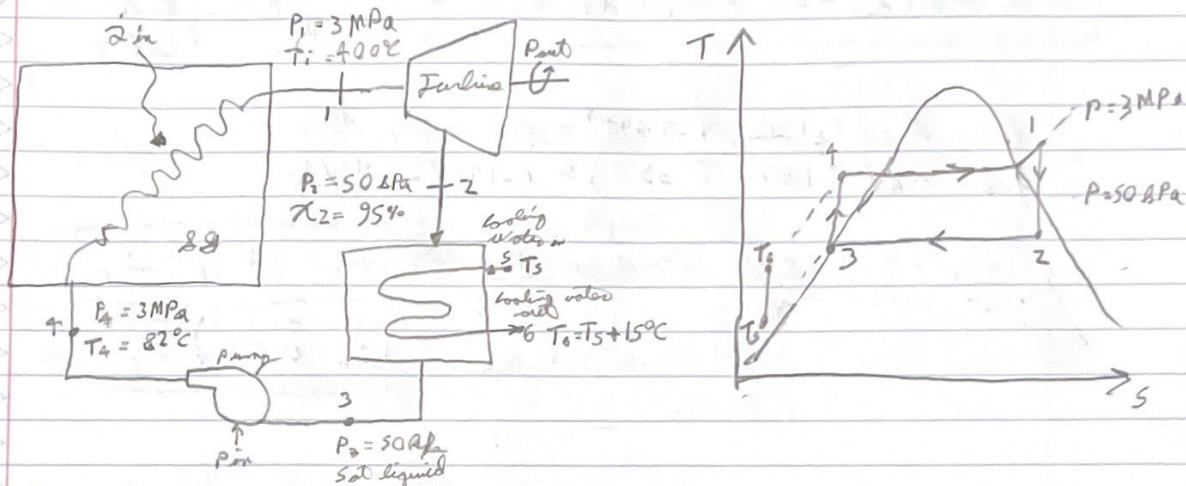 P₁ = 3 MPa
T₁ = 400°C
Turbine
Pout
1
P₂ = 50 kPa
x₂ = 95%
2
cooling
water in
5 T5
cooling water
out
6 T6 = T5 + 15°C
4
P₄ = 3 MPa
T₄ = 82°C
pump
Pin
3
P₃ = 50 kPa
Sat liquid
T
P = 3 MPa
1
4
P = 50 kPa
T6
3
2
T5
S